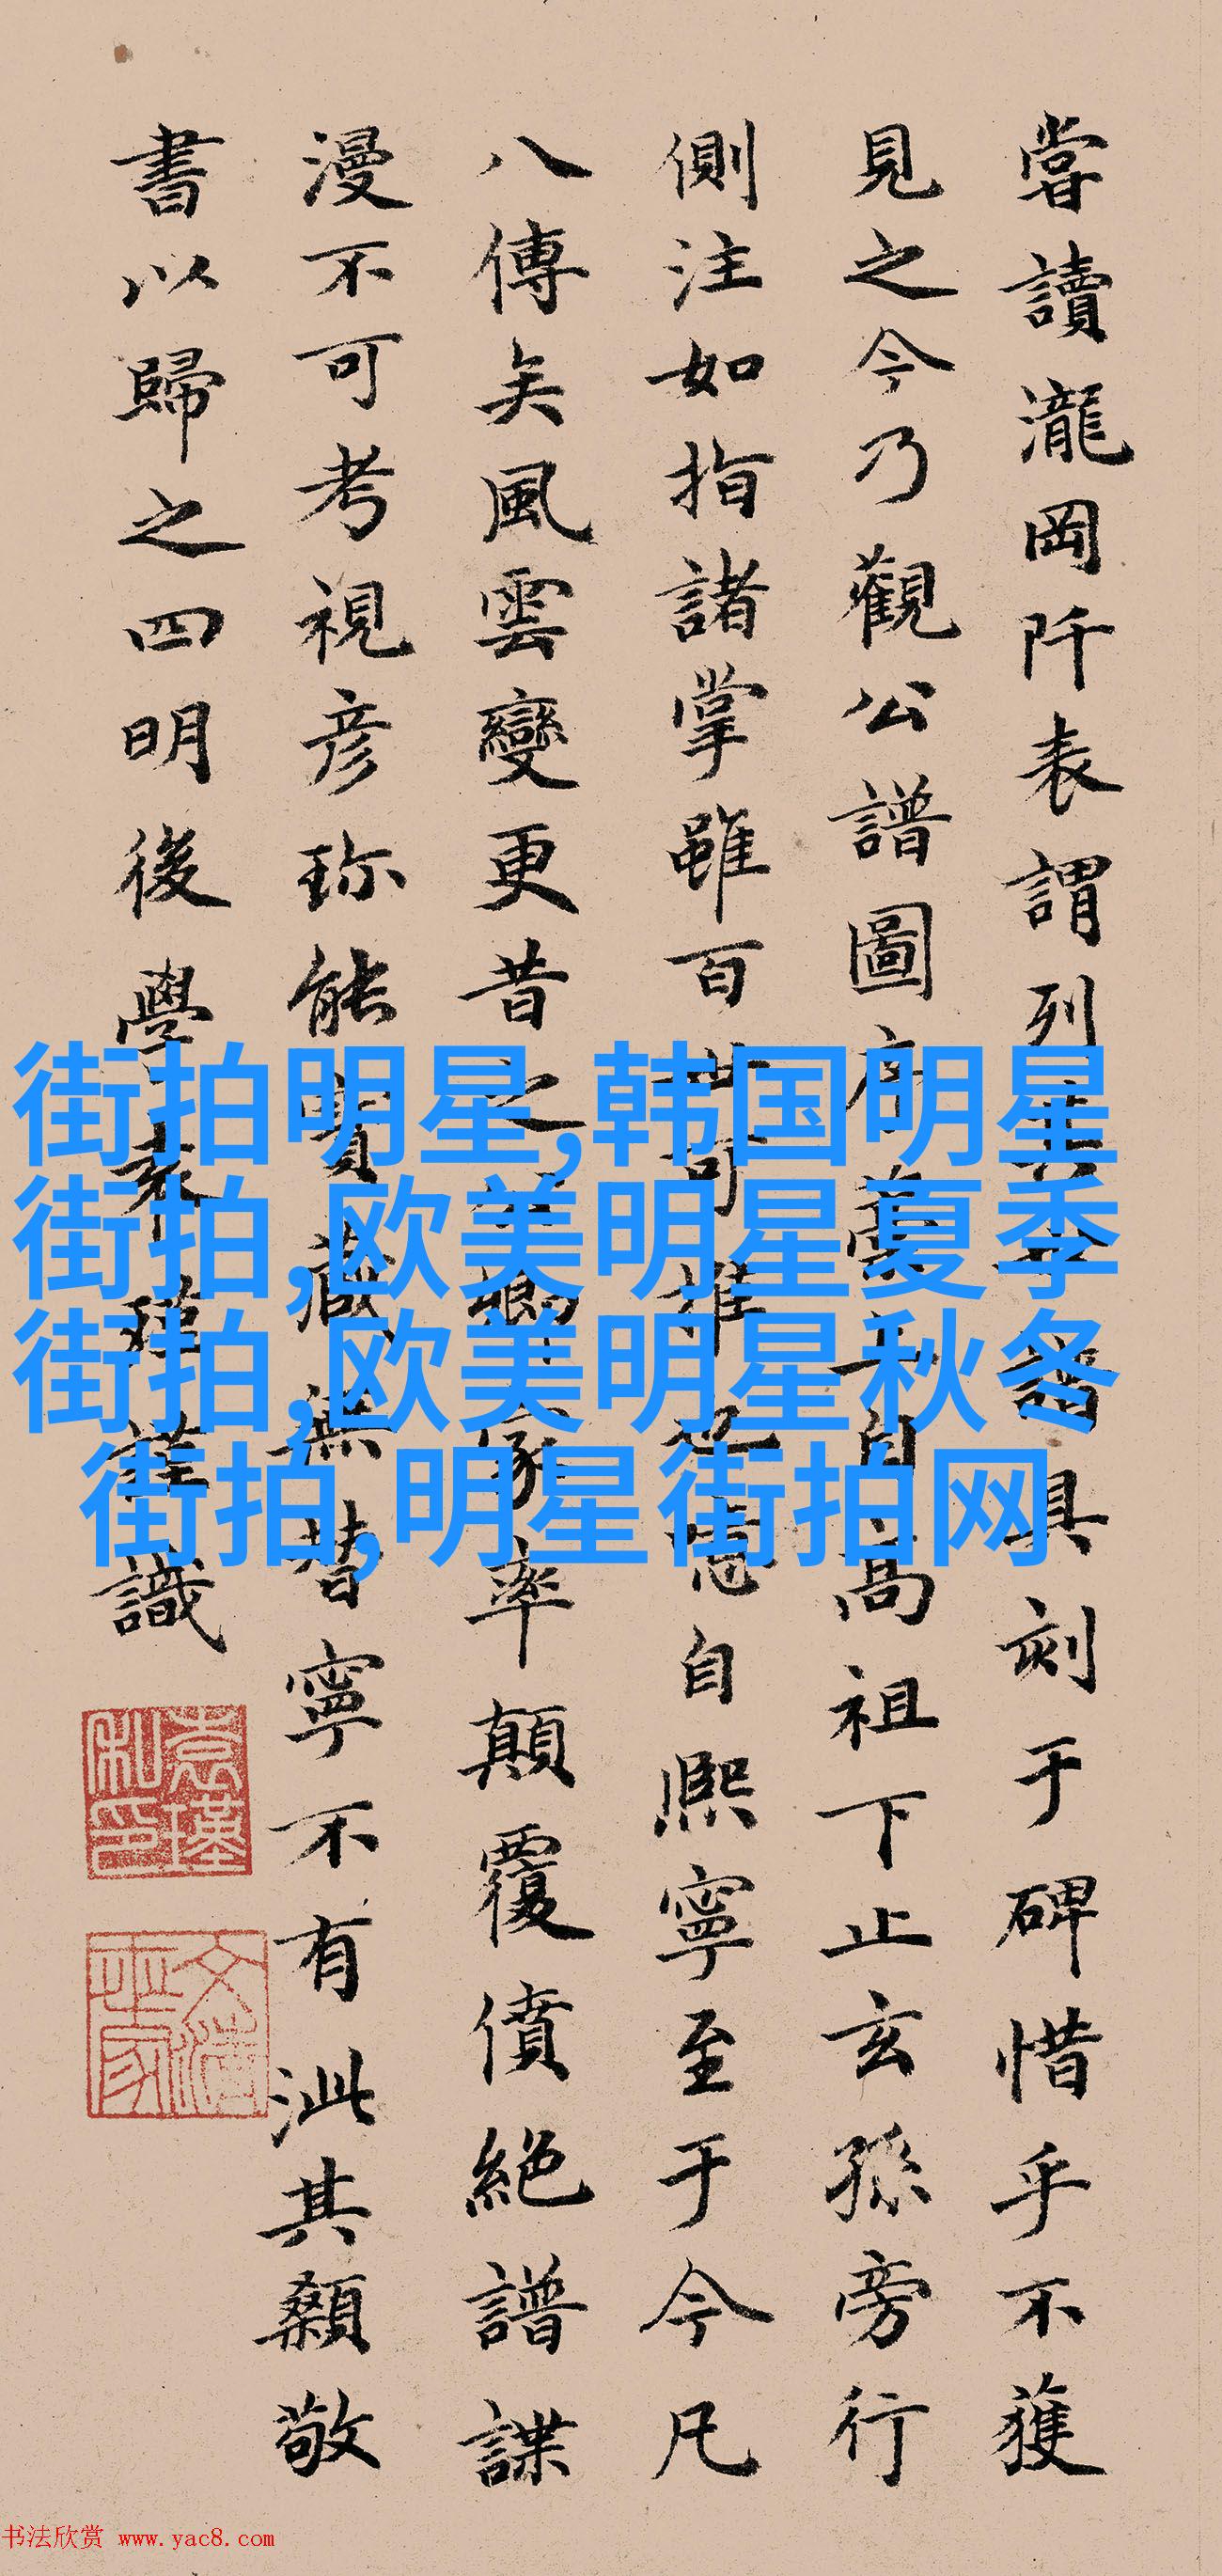 嘗讀瀧岡阡表謂列其世譜具刻于碑惜乎不獲
見之今乃觀公譜圖序藁一自高祖下止玄孫旁行
側注如指諸掌雖百世可推也憙自熙寧至于今凡
八傳矣風雲變更昔之家率顛覆債絕譜諜
漫不可考視彥珎能寶藏無替寧不有泚其顙敬
書以歸之四明後學袁瑾謹識
袁瑾私印
街拍明星,韩国明星
街拍,欧美明星夏季
街拍,欧美明星秋冬
街拍,明星街拍网
书法欣赏 www.yac8.com